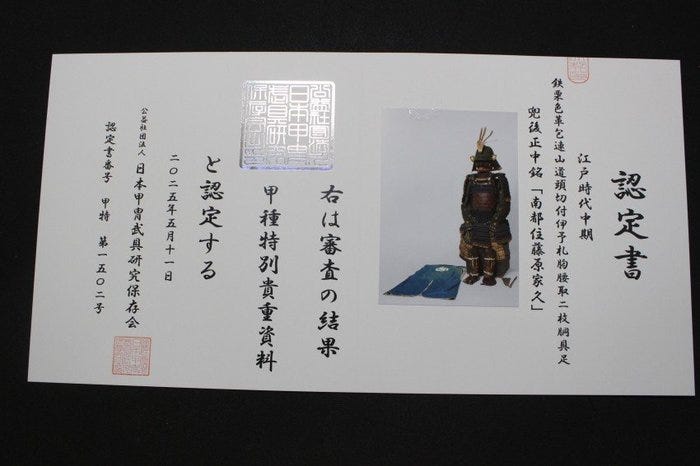 認定書
鉄栗色革包連山道頭切付伊予札胸腰取二枚胴具足
江戸時代中期
兜後正中銘「南部住藤原家久」
右は審査の結果
甲種特別貴重資料
と認定する
二〇二五年五月十一日
公益社団法人 日本甲冑武具研究保存会
認定書番号 甲特 第一五〇二号